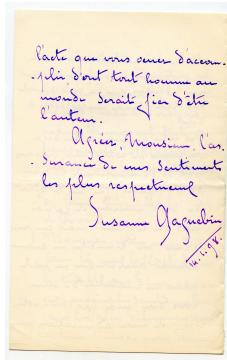 l'acte que vous venez d'accom-
-plir dont tout homme au
monde serait fier d'être
l'auteur.
Agréez, Monsieur, l'as-
-surance de mes sentiments
les plus respectueux
Susanne Gagnebin
14.1.98.